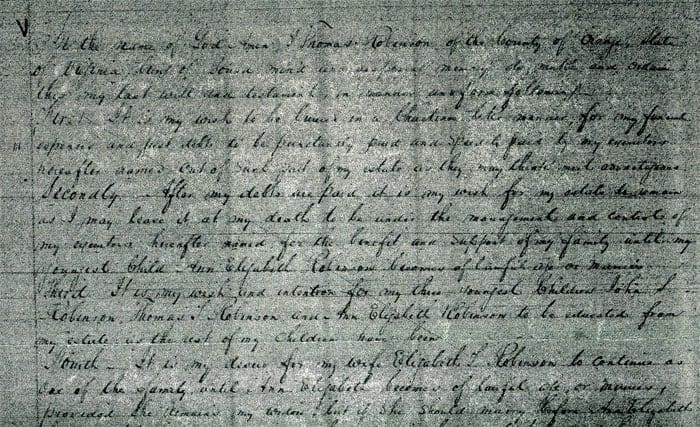 In the name of God Amen I Thomas Robinson of the County of Orange, State
of Virginia, being of sound mind and disposing memory, do, make and ordain
this my last will and testament in manner and form following
First. It is my wish to be buried in a Christian like manner, for my funeral
expenses and just debts to be punctually paid and to be paid by my executors
hereafter named out of such part of my estate as they may think most advantageous
Secondly After my debts are paid it is my wish for my estate to remain
as I may leave it at my death to be under the management and control of
my executors hereafter named for the benefit and support of my family until my
youngest Child Ann Elizabeth Robinson becomes of lawful age or marries
Third. It is my wish and intention for my three youngest Children John S
Robinson Thomas S Robinson and Ann Elizabeth Robinson to be educated from
my estate as the rest of my Children have been
Fourth. It is my desire for my wife Elizabeth S Robinson to continue as
one of the family until Ann Elizabeth becomes of lawful age, or marries,
provided she remains my widow but if she should marry before Ann Elizabeth